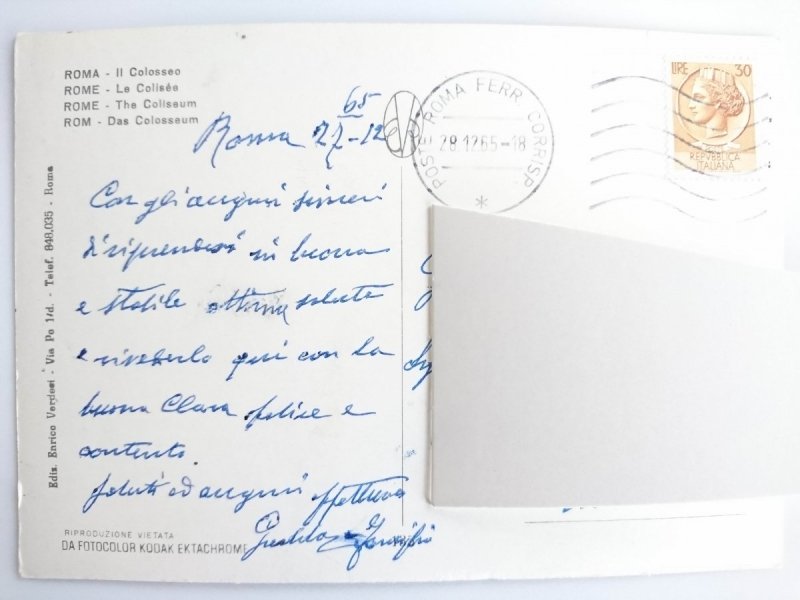 ROMA - Il Colosseo
ROME - Le Colisée
ROME - The Coliseum
ROM - Das Colosseum
Roma 27-12
65
POSTE ROMA FERR. CORRISP.
28.12.65-18
LIRE 30
REPVBBLICA
ITALIANA
Con gli auguri sinceri
di riprendersi in buona
e stabile ottima salute
e rivederlo qui con la
buona Clara felice e
contento.
Saluti ed auguri affettuosi
e Famiglia
Ediz. Enrico Verdesi - Via Po 1/d. - Telef. 848.035 - Roma
RIPRODUZIONE VIETATA
DA FOTOCOLOR KODAK EKTACHROME